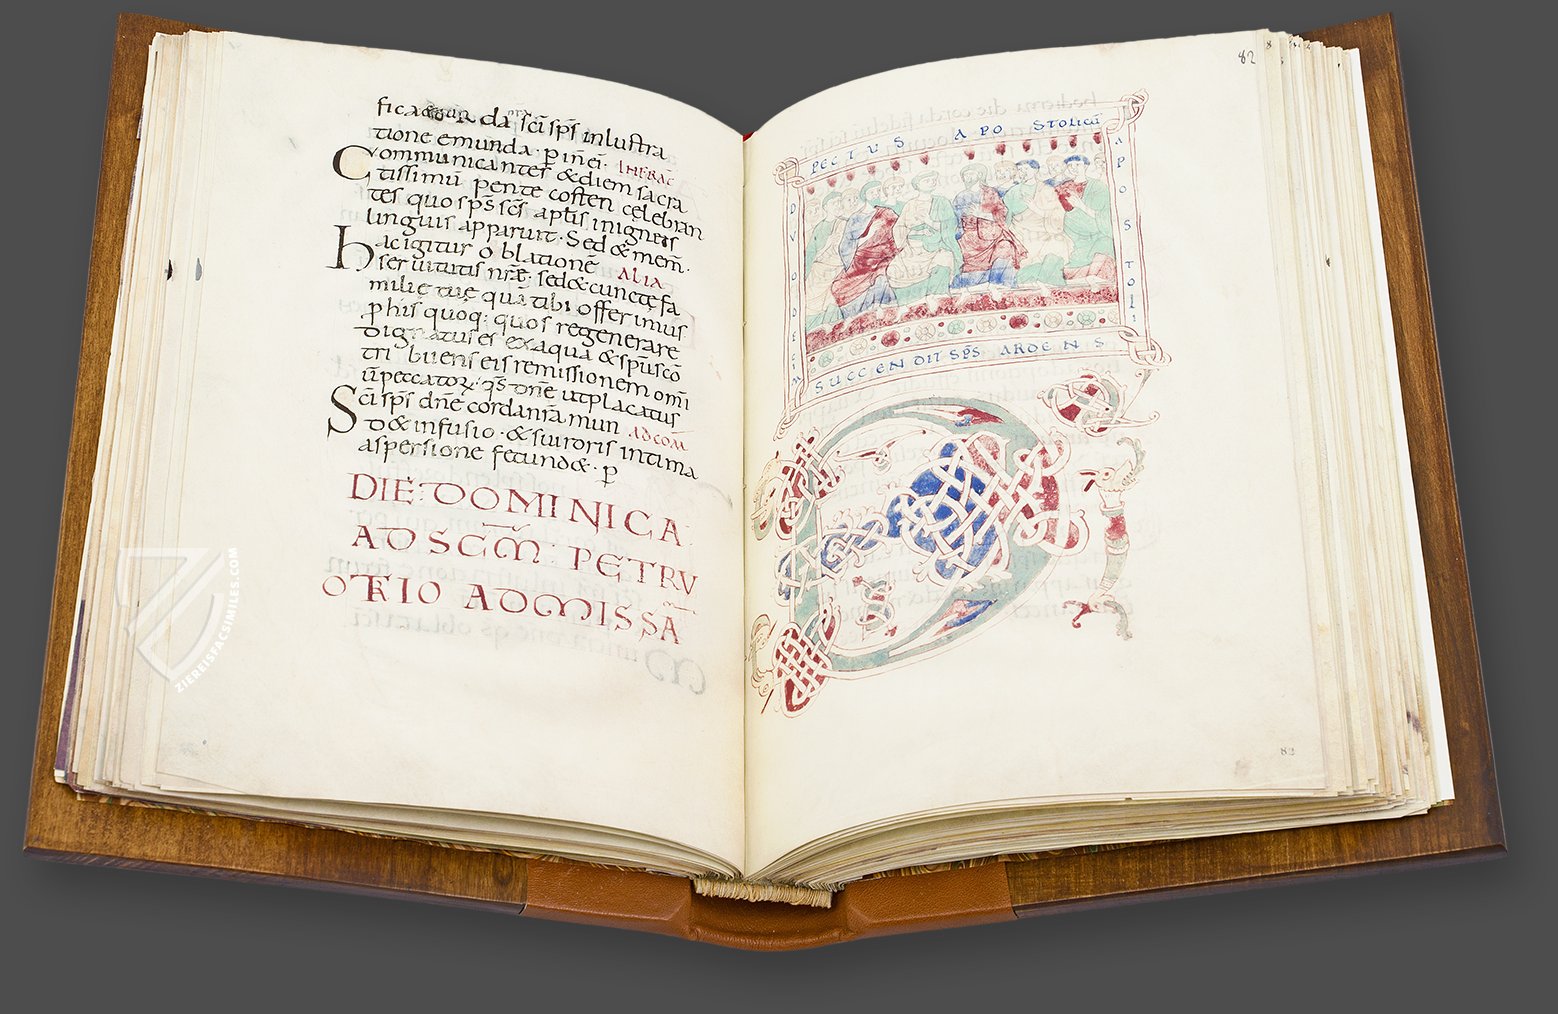 da sc̄i sp̄s inlustra
tione emunda · p̄ in̄ei · INFRAC̄T
Communicantes & diem sacra
tissimū pente costen celebran
tes quo sp̄s sc̄s aptīs inigneis
linguis apparuit · Sed & mem̄ ·
hac igitur oblationē ALIA
seruitutis nr̄ę · sed & cunctę fa
milię tuę quā tibi offerimus
p his quoq; quos regenerare
dignatus es ex aqua & sp̄u sc̄o
tri buens eis remissionem omī
ū peccator̄ · qs̄ dn̄e ut placatus
Sc̄i sp̄s dn̄e corda nr̄a mun AD COM̄
d& infusio · & sui roris intima
aspersione fecund& · p̄
DIĒ DOMINICA
AD SC̄M̄ : PETRV
OR̄IO AD MISSĀ
82
PECTVS APOSTOLICŪ
DVODECIM
APOSTOLI
SUCCENDIT SP̄S ARDENS
D
82
ZIEREISFACSIMILES.COM